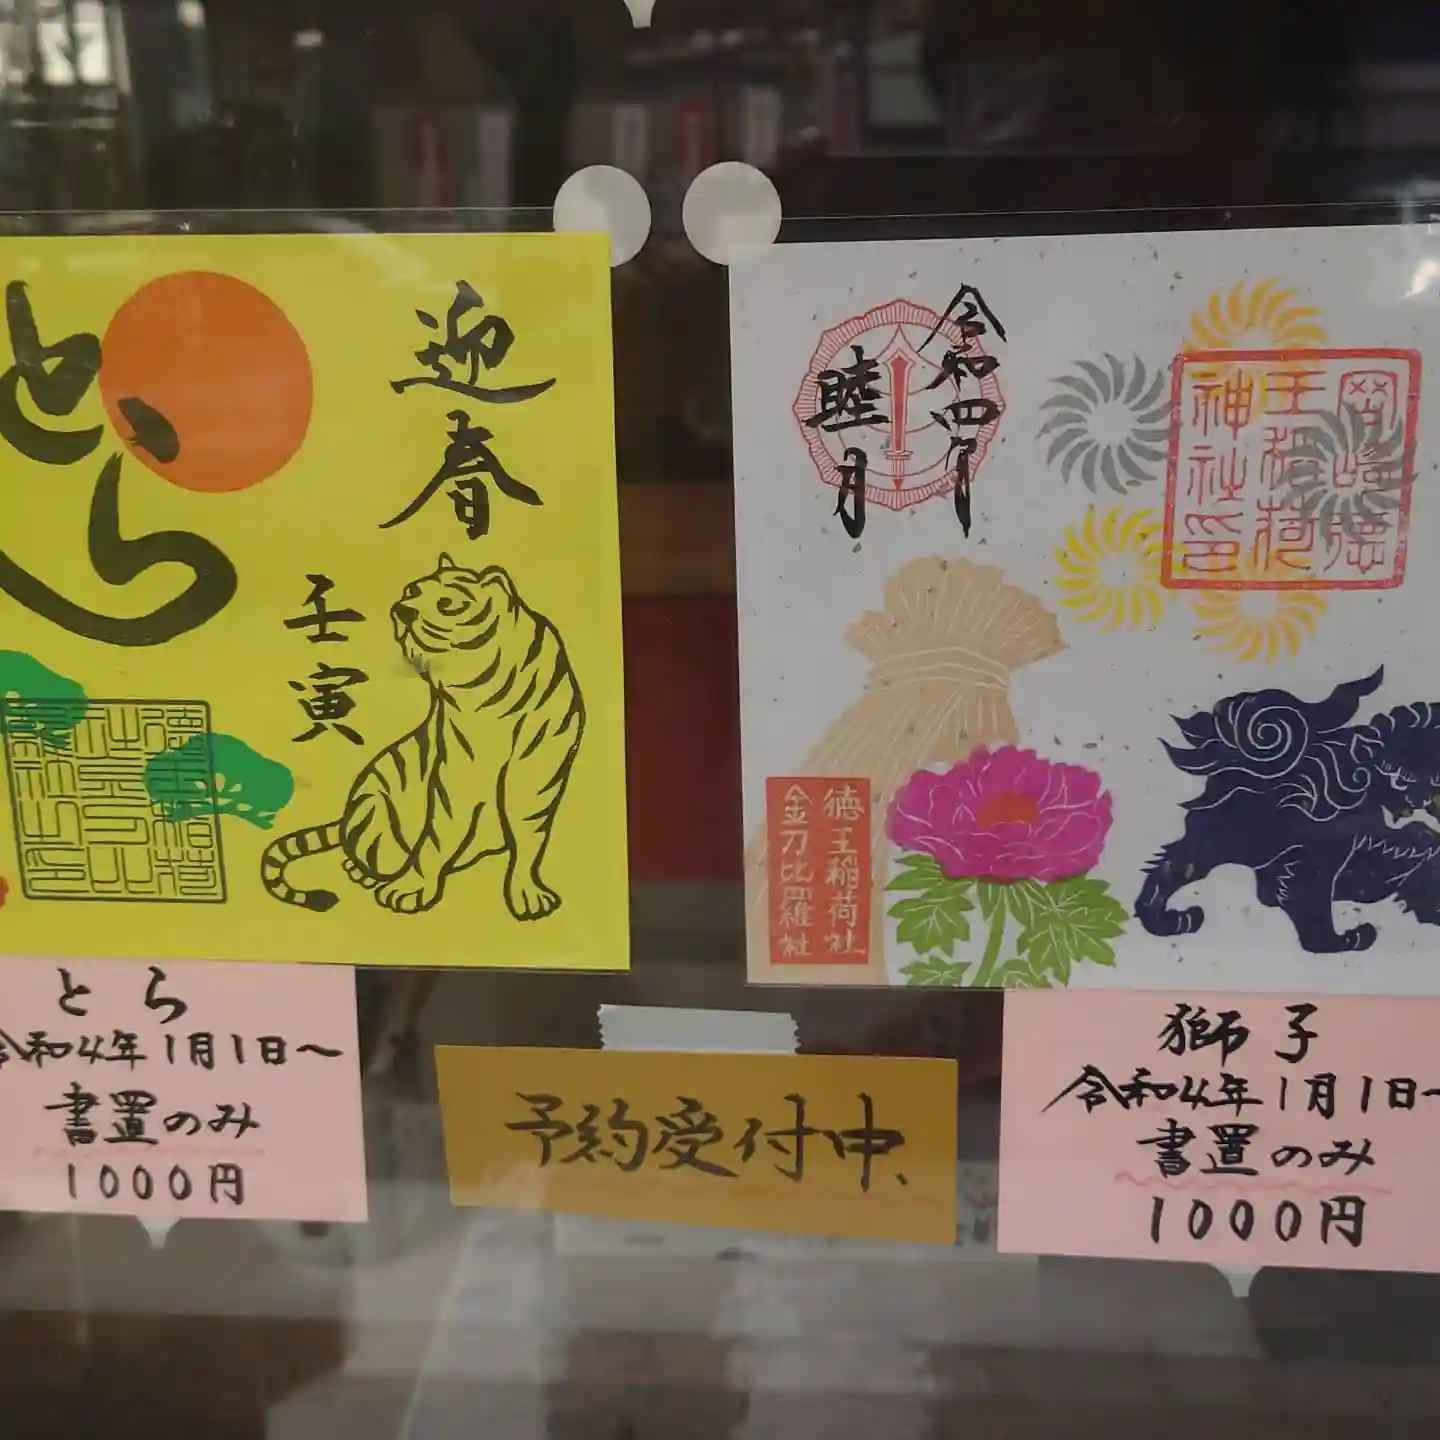 とら
迎春
壬寅
とら
令和4年1月1日～
書置のみ
1000円
予約受付中、
令和四年
睦月
岡崎徳
王稲荷
神社印
徳王稲荷社
金刀比羅社
獅子
令和4年1月1日～
書置のみ
1000円